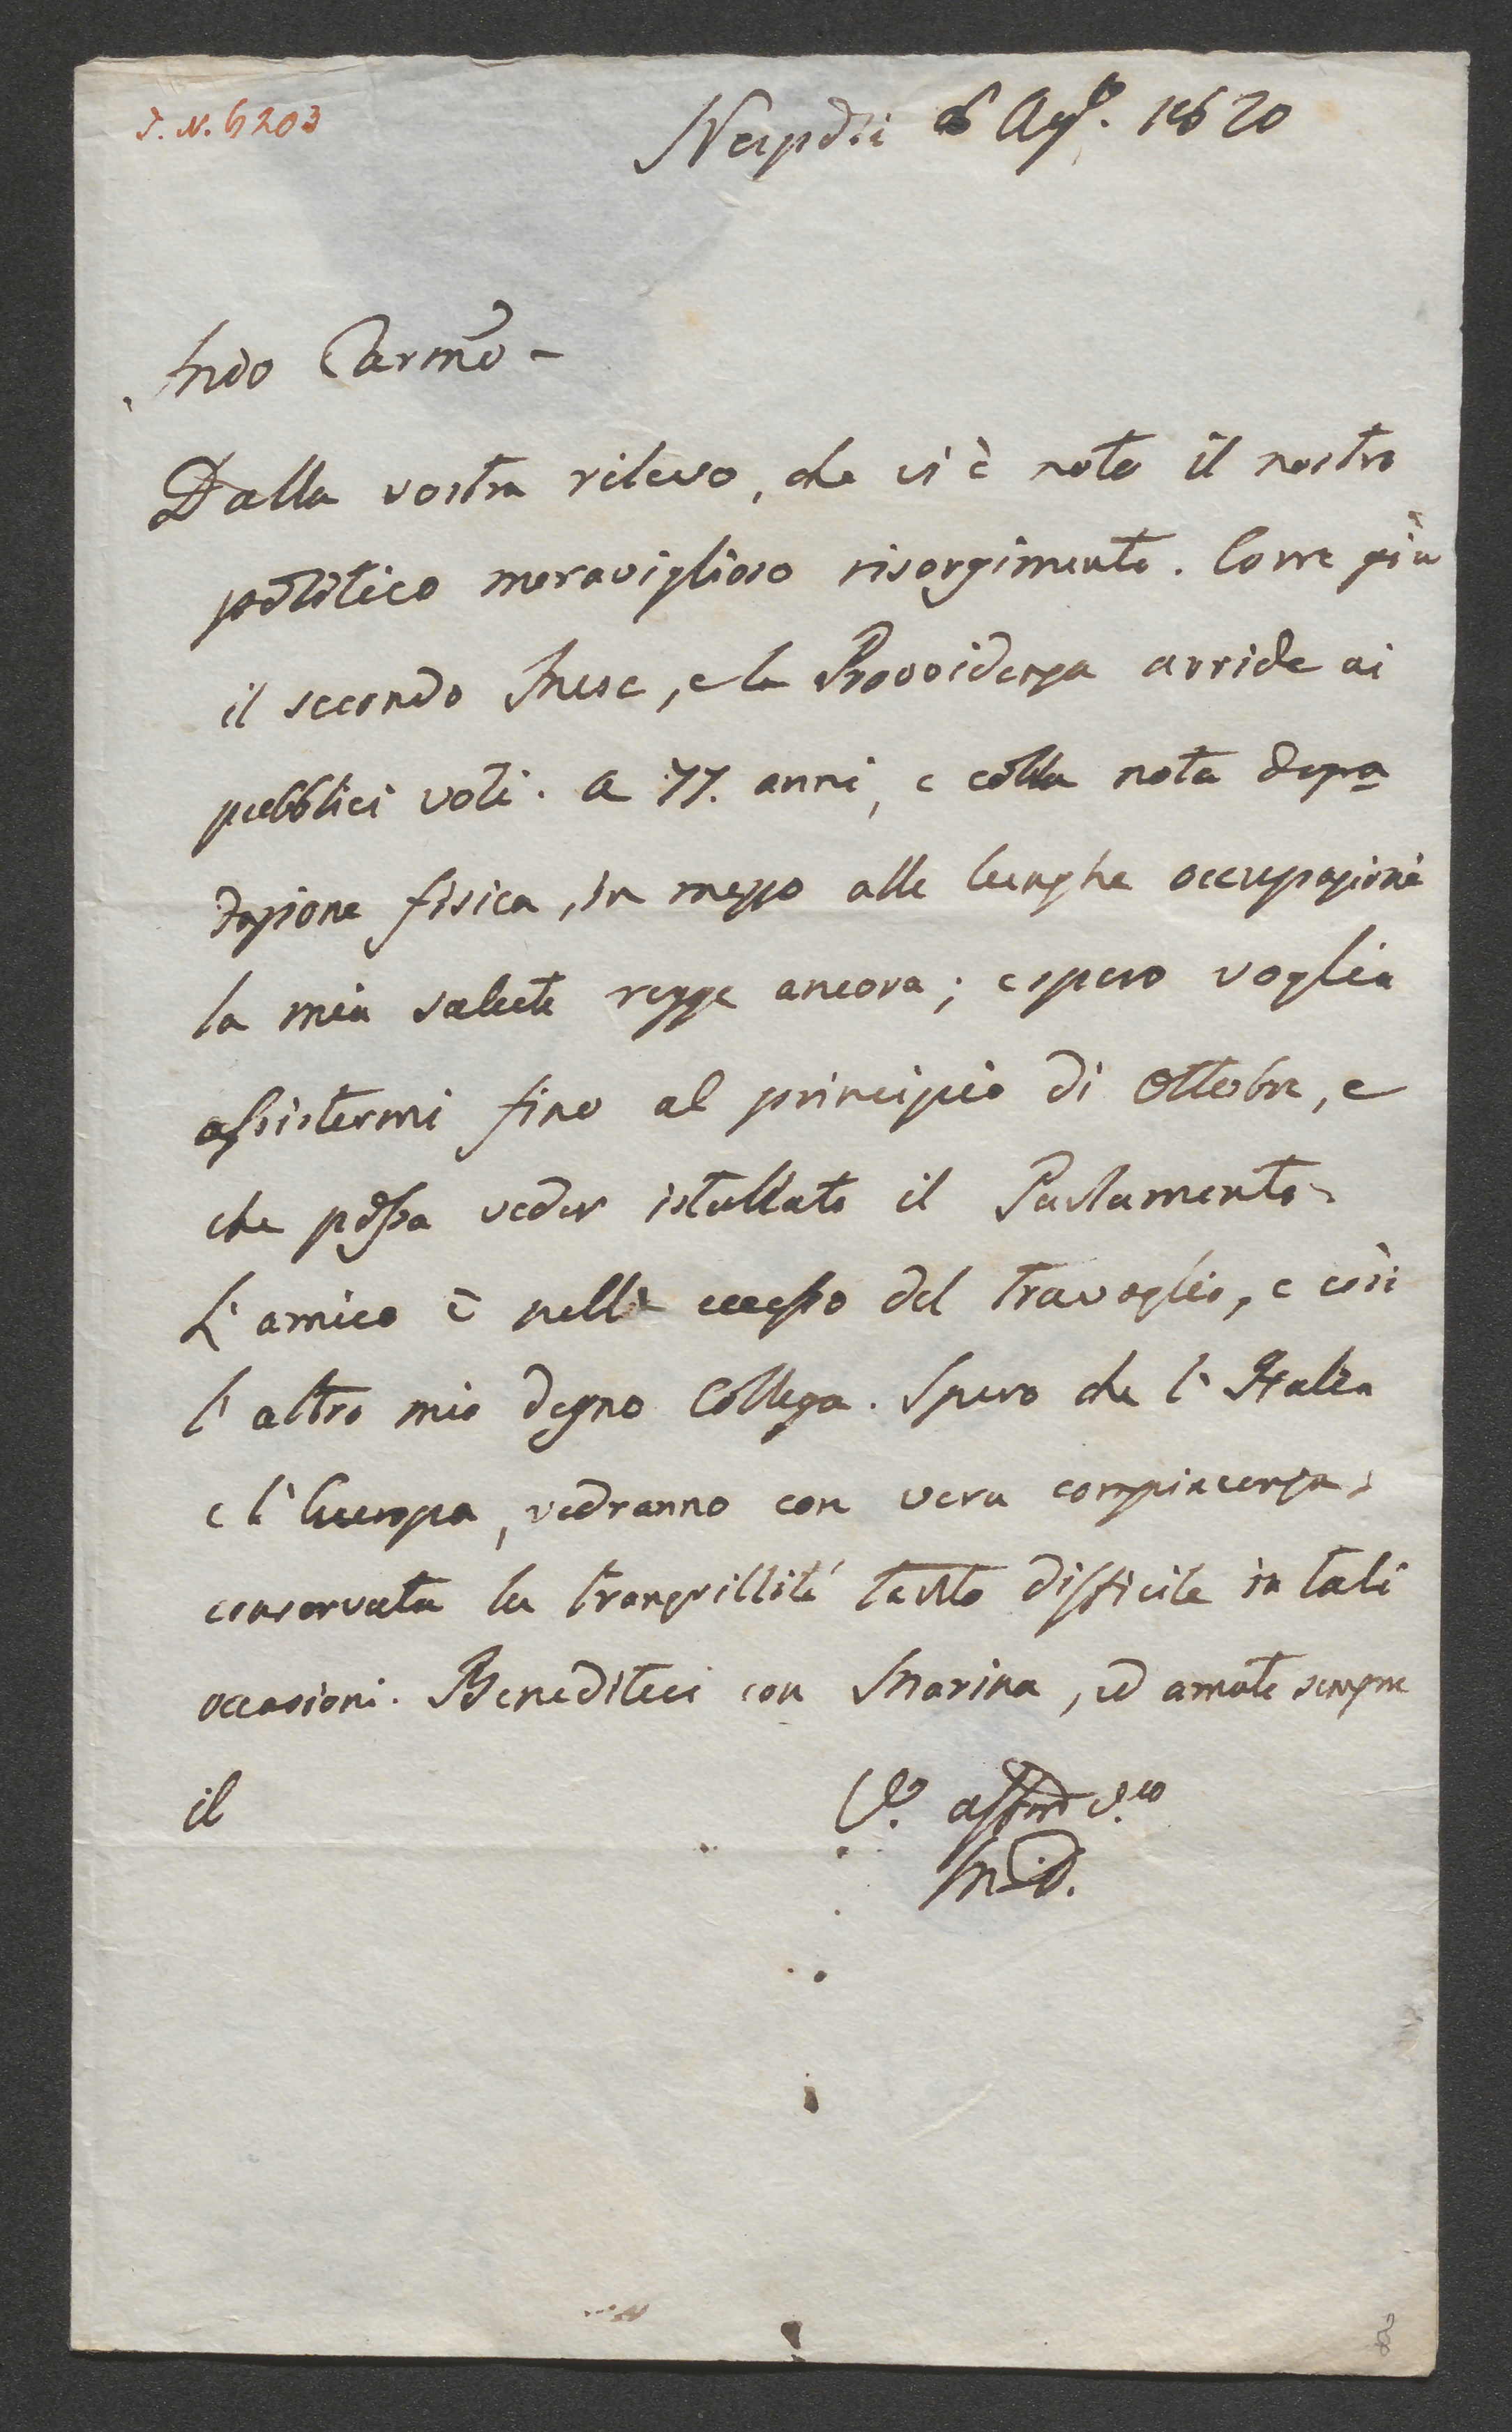 J. N. 6203
Napoli 6 Ag.to 1820
Mio Carmo -
Dalla vostra rilevo, che vi è noto il nostro
politico meraviglioso risorgimento. Corre già
il secondo Mese, e la Provvidenza arride ai
pubblici voti. A 77. anni, e colla nota degra
dazione fisica, in mezzo alle lunghe occupazioni
la mia salute regge ancora; e spero voglia
assistermi fino al principio di Ottobre, e
che possa veder istallato il Parlamento.
L'amico è nell' eccesso del travaglio, e così
l'altro mio degno Collega. Spero che l'Italia
e l'Europa, vedranno con vera compiacenza,
conservata la tranquillità tanto difficile in tali
occasioni. Benediteci con Marina, ed amate sempre
il
V.o affmo
M.D.